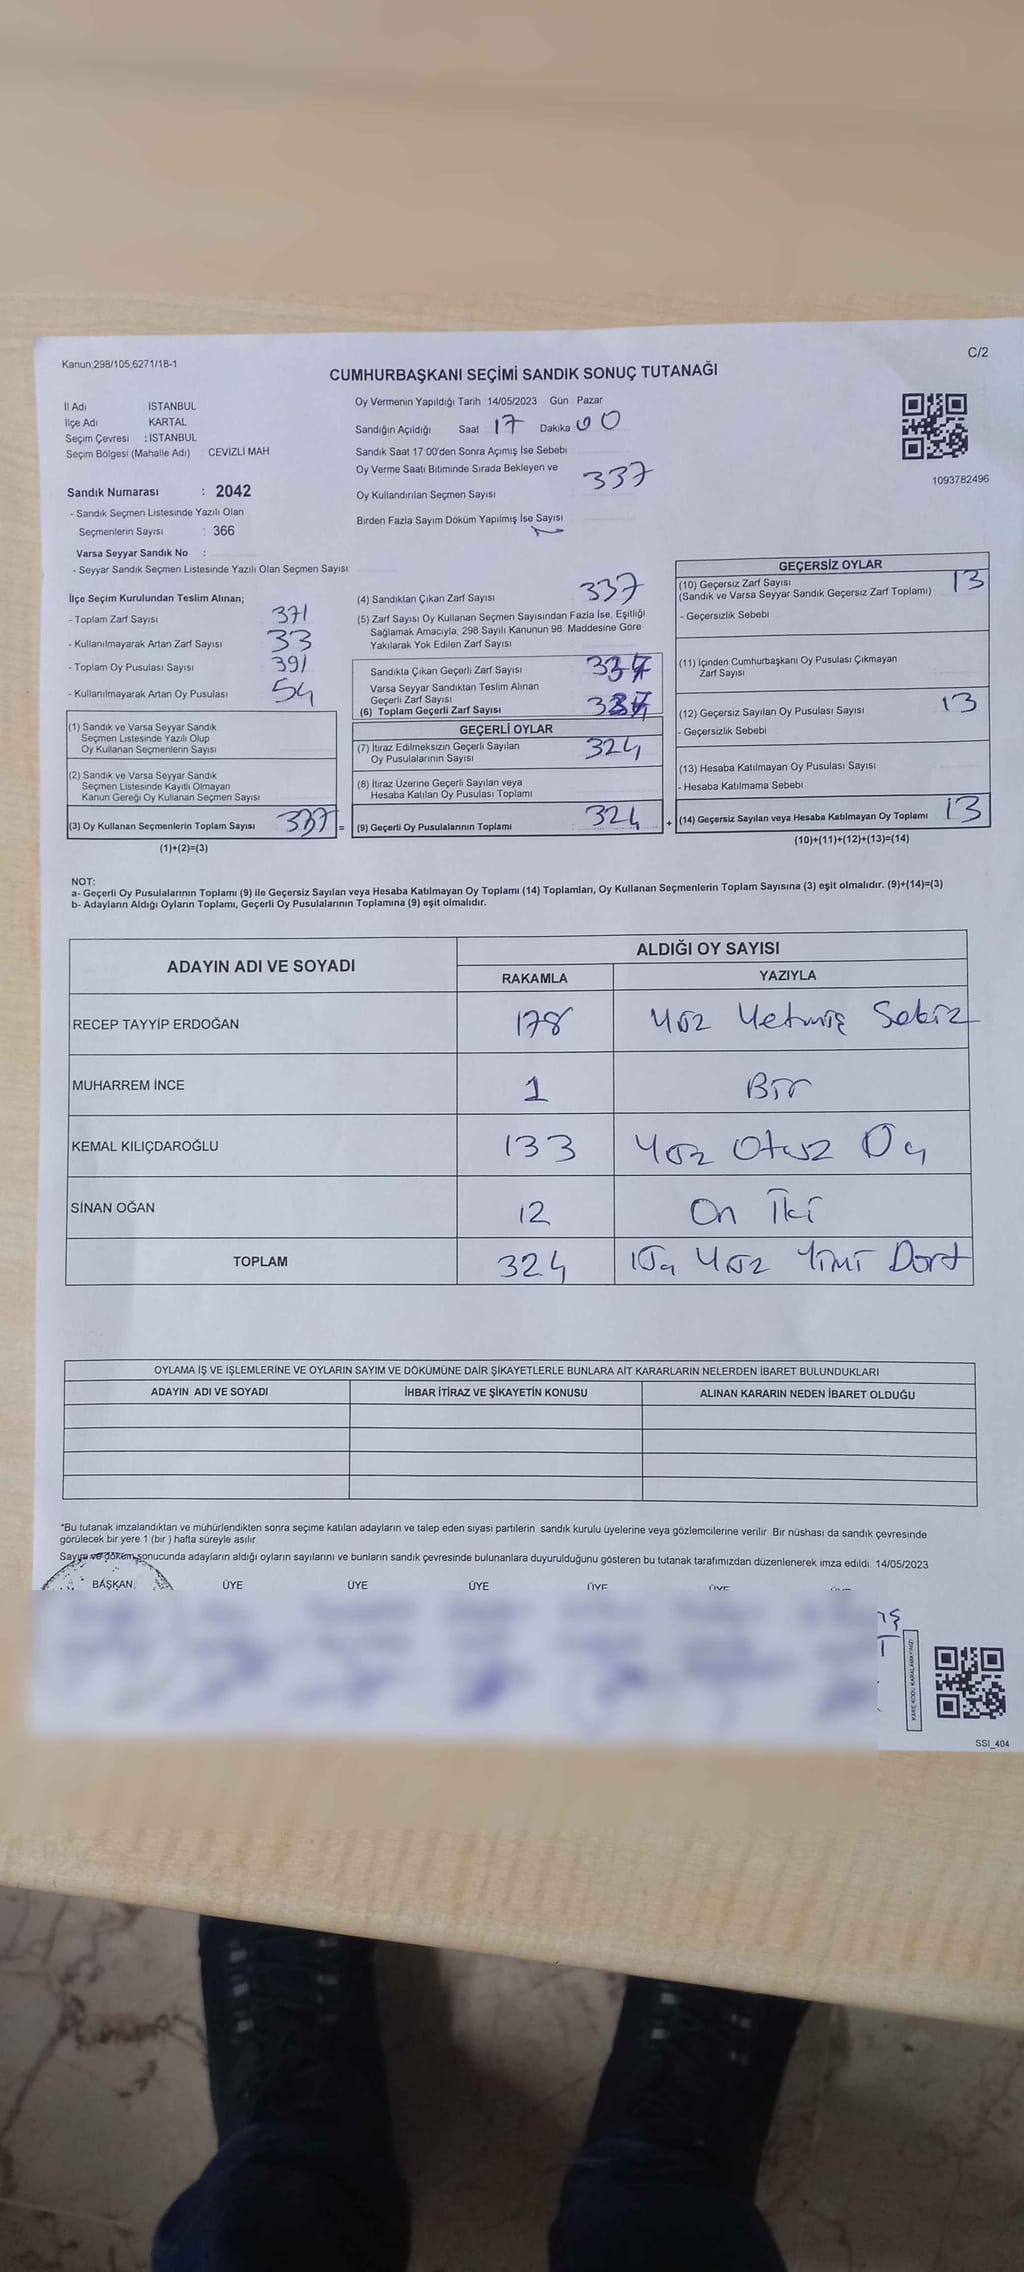 Kanun;298/105,6271/18-1
C/2
CUMHURBAŞKANI SEÇİMİ SANDIK SONUÇ TUTANAĞI
İl Adı İSTANBUL
İlçe Adı KARTAL
Seçim Çevresi : İSTANBUL
Seçim Bölgesi (Mahalle Adı) CEVİZLİ MAH
Oy Vermenin Yapıldığı Tarih 14/05/2023 Gün Pazar
Sandığın Açıldığı Saat 17 Dakika 00
Sandık Saat 17:00'den Sonra Açımış İse Sebebi
Oy Verme Saati Bitiminde Sırada Bekleyen ve
Oy Kullandırılan Seçmen Sayısı 337
Birden Fazla Sayım Döküm Yapılmış İse Sayısı
1093782496
Sandık Numarası : 2042
- Sandık Seçmen Listesinde Yazılı Olan
Seçmenlerin Sayısı : 366
Varsa Seyyar Sandık No :
- Seyyar Sandık Seçmen Listesinde Yazılı Olan Seçmen Sayısı
İlçe Seçim Kurulundan Teslim Alınan;
- Toplam Zarf Sayısı 371
- Kullanılmayarak Artan Zarf Sayısı 33
- Toplam Oy Pusulası Sayısı 391
- Kullanılmayarak Artan Oy Pusulası 54
(1) Sandık ve Varsa Seyyar Sandık
Seçmen Listesinde Yazılı Olup
Oy Kullanan Seçmenlerin Sayısı
(2) Sandık ve Varsa Seyyar Sandık
Seçmen Listesinde Kayıtlı Olmayan
Kanun Gereği Oy Kullanan Seçmen Sayısı
(3) Oy Kullanan Seçmenlerin Toplam Sayısı 337 =
(1)+(2)=(3)
(4) Sandıktan Çıkan Zarf Sayısı 337
(5) Zarf Sayısı Oy Kullanan Seçmen Sayısından Fazla İse, Eşitliği
Sağlamak Amacıyla, 298 Sayılı Kanunun 98. Maddesine Göre
Yakılarak Yok Edilen Zarf Sayısı
Sandıkta Çıkan Geçerli Zarf Sayısı
Varsa Seyyar Sandıktan Teslim Alınan
Geçerli Zarf Sayısı
(6) Toplam Geçerli Zarf Sayısı
GEÇERLİ OYLAR
(7) İtiraz Edilmeksizin Geçerli Sayılan
Oy Pusulalarının Sayısı 324
(8) İtiraz Üzerine Geçerli Sayılan veya
Hesaba Katılan Oy Pusulası Toplamı
(9) Geçerli Oy Pusulalarının Toplamı 324 +
GEÇERSİZ OYLAR
(10) Geçersiz Zarf Sayısı 13
(Sandık ve Varsa Seyyar Sandık Geçersiz Zarf Toplamı)
- Geçersizlik Sebebi
(11) İçinden Cumhurbaşkanı Oy Pusulası Çıkmayan
Zarf Sayısı
(12) Geçersiz Sayılan Oy Pusulası Sayısı 13
- Geçersizlik Sebebi
(13) Hesaba Katılmayan Oy Pusulası Sayısı
- Hesaba Katılmama Sebebi
(14) Geçersiz Sayılan veya Hesaba Katılmayan Oy Toplamı 13
(10)+(11)+(12)+(13)=(14)
NOT:
a- Geçerli Oy Pusulalarının Toplamı (9) ile Geçersiz Sayılan veya Hesaba Katılmayan Oy Toplamı (14) Toplamları, Oy Kullanan Seçmenlerin Toplam Sayısına (3) eşit olmalıdır. (9)+(14)=(3)
b- Adayların Aldığı Oyların Toplamı, Geçerli Oy Pusulalarının Toplamına (9) eşit olmalıdır.
ADAYIN ADI VE SOYADI ALDIĞI OY SAYISI
RAKAMLA YAZIYLA
RECEP TAYYİP ERDOĞAN 178 Yüz Yetmiş Sekiz
MUHARREM İNCE 1 Bir
KEMAL KILIÇDAROĞLU 133 Yüz Otuz Üç
SİNAN OĞAN 12 On İki
TOPLAM 324 Üç Yüz Yirmi Dört
OYLAMA İŞ VE İŞLEMLERİNE VE OYLARIN SAYIM VE DÖKÜMÜNE DAİR ŞİKAYETLERLE BUNLARA AİT KARARLARIN NELERDEN İBARET BULUNDUKLARI
ADAYIN ADI VE SOYADI İHBAR İTİRAZ VE ŞİKAYETİN KONUSU ALINAN KARARIN NEDEN İBARET OLDUĞU
*Bu tutanak imzalandıktan ve mühürlendikten sonra seçime katılan adayların ve talep eden siyasi partilerin sandık kurulu üyelerine veya gözlemcilerine verilir. Bir nüshası da sandık çevresinde
görülecek bir yere 1 (bir ) hafta süreyle asılır.
Sayım ve döküm sonucunda adayların aldığı oyların sayılarını ve bunların sandık çevresinde bulunanlara duyurulduğunu gösteren bu tutanak tarafımızdan düzenlenerek imza edildi. 14/05/2023
BAŞKAN ÜYE ÜYE ÜYE ÜYE ÜYE
KARE KODU KARALAMAYINIZ!
SSI_404